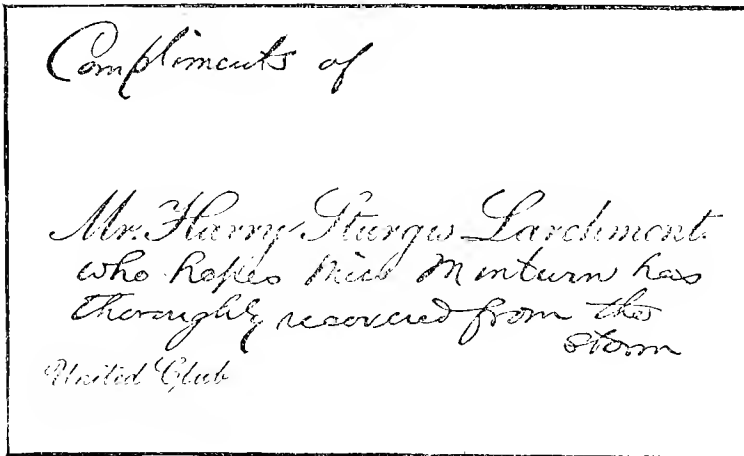 Compliments of
Mr. Harry Sturgis Larchmont.
who hopes Miss Minturn has
thoroughly recovered from the
storm
United Club